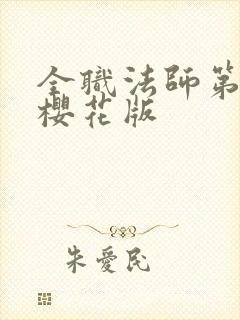 全職法師第
櫻花版
朱愛民